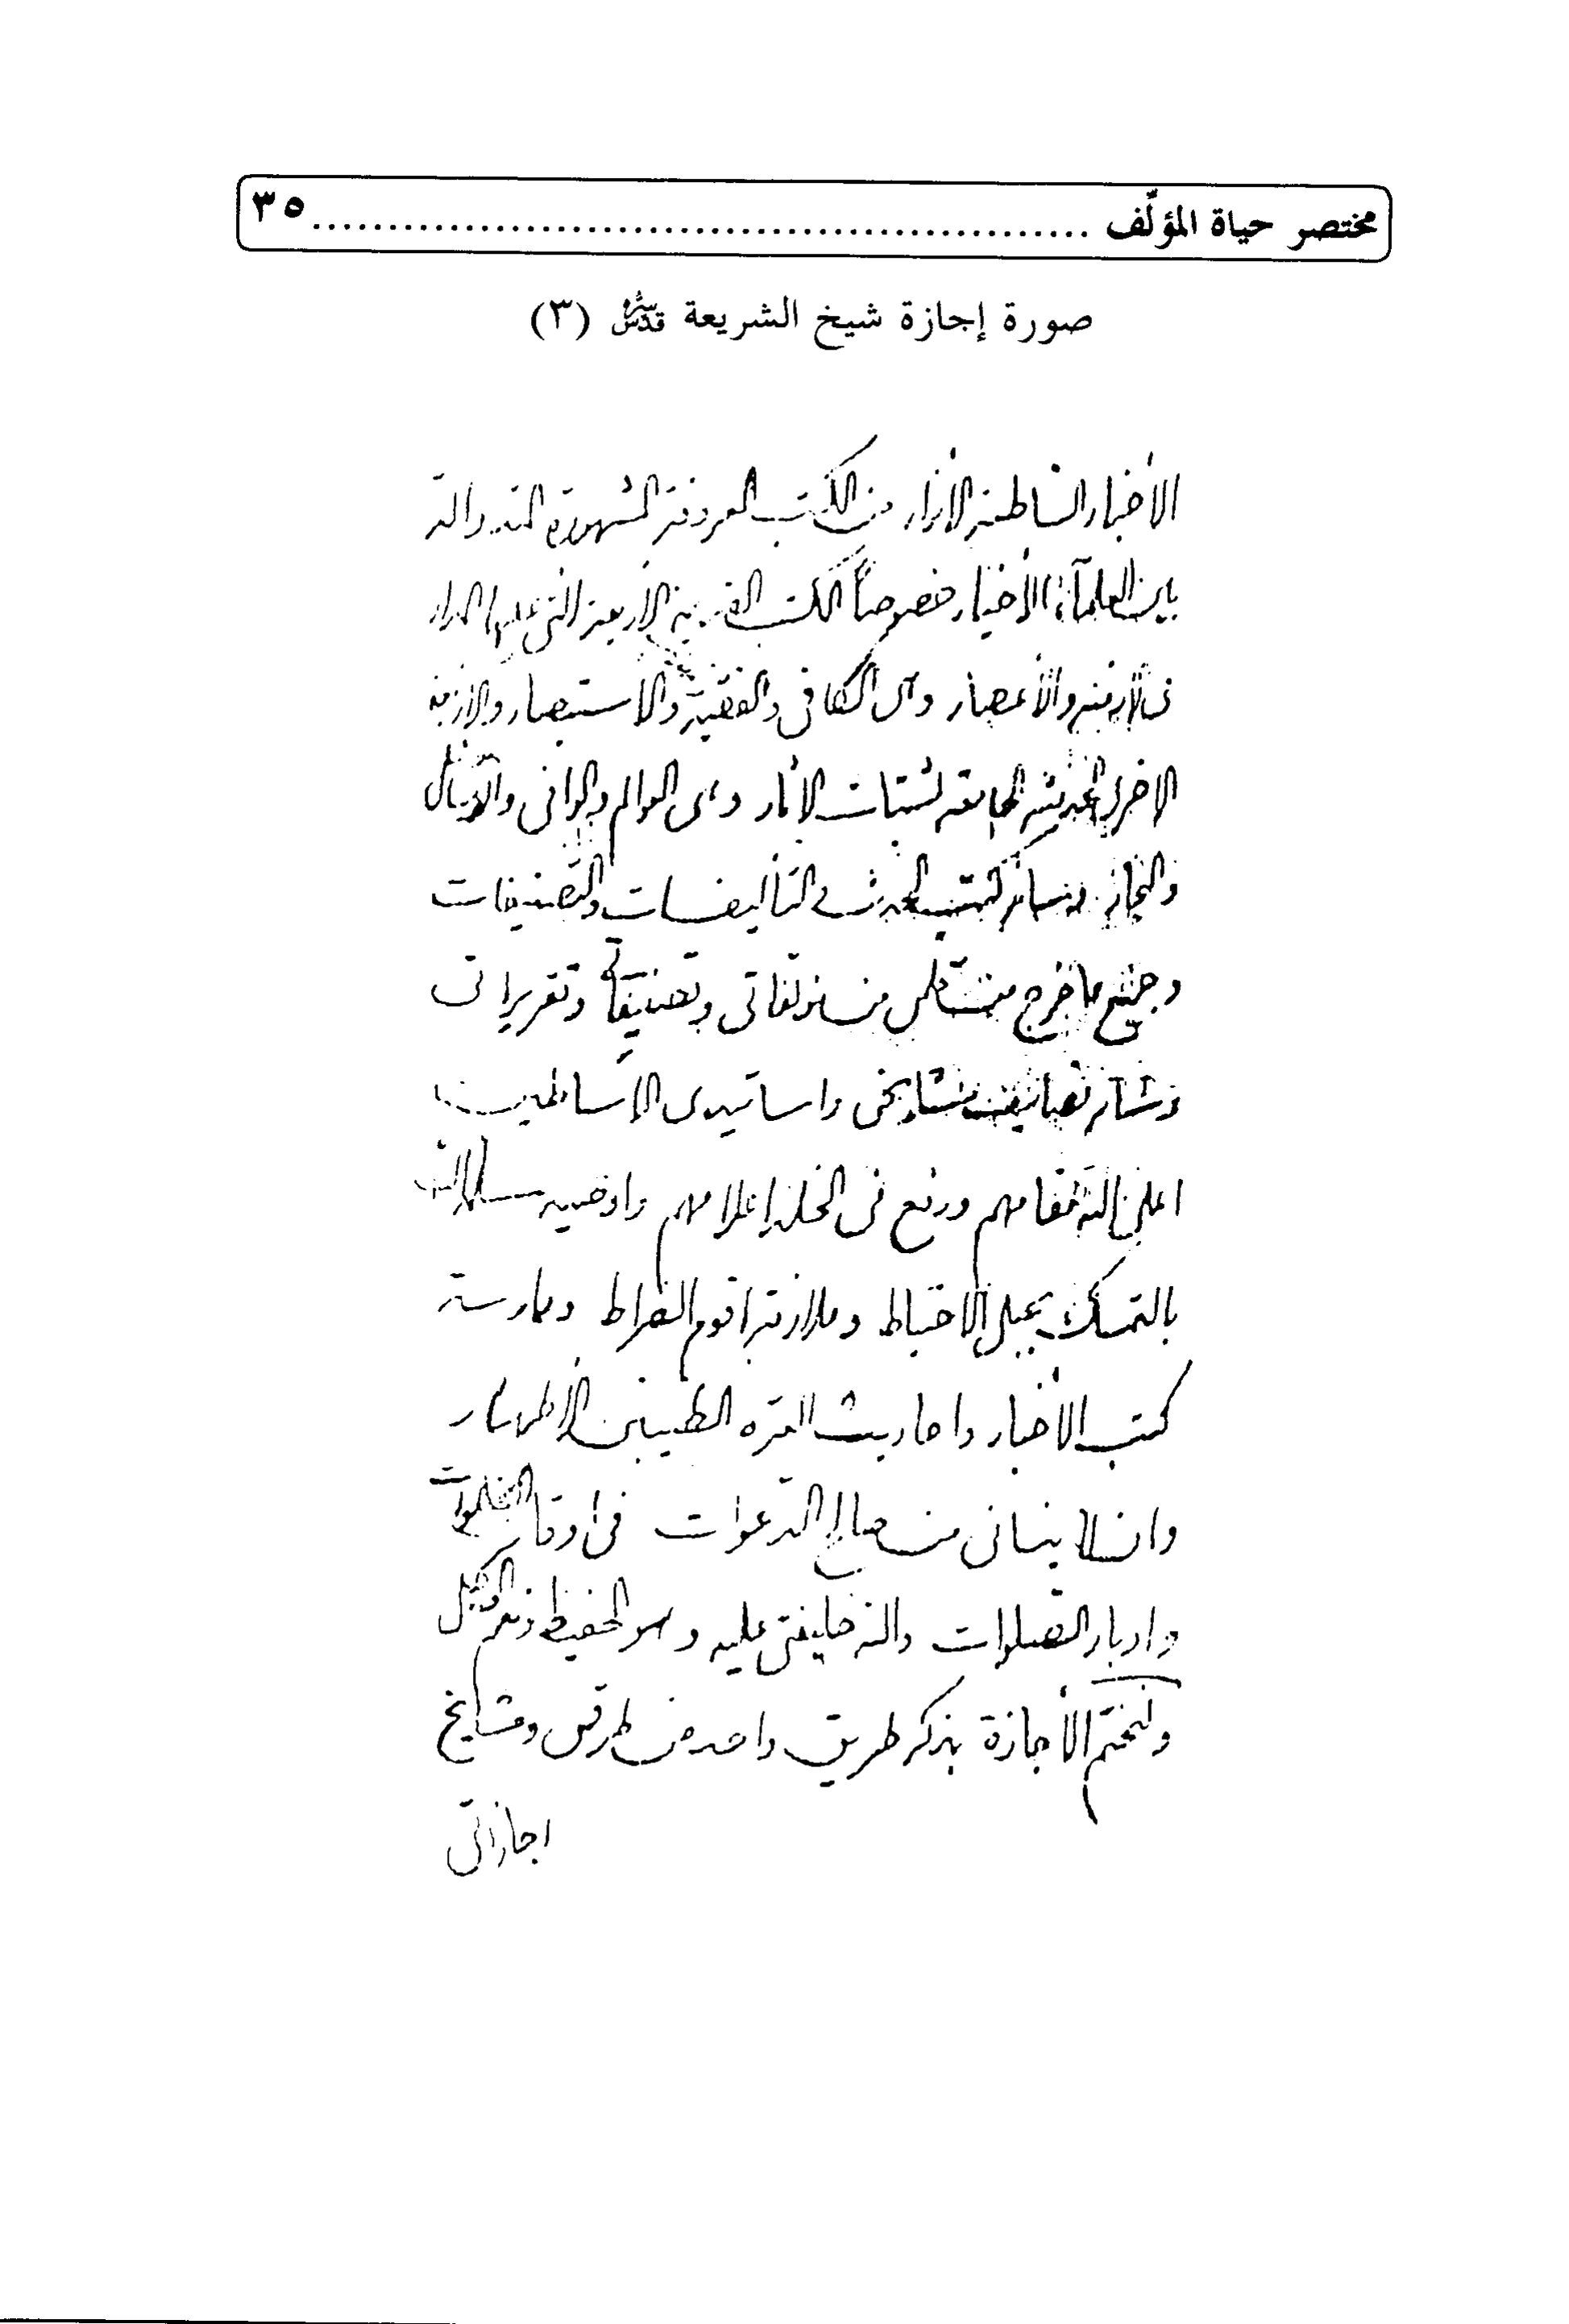 مختصر حياة المؤلّف ........................................................ ٣٥
صورة إجازة شيخ الشريعة قدّس سرّه (٣)
الأخبار الساطعة الأنوار من الكتب المعروفة المشهورة المتداولة
بين العلمآء الأخيار خصوصاً الكتب القديمة الأربعة التي عليها المدار
في الأزمنة والأعصار وهى الكافي والفقيه والاستبصار والأربعة
الاخرى الحديثة الجامعة لشتات الاثار وهى العوالم والوافى والوسائل
والبحار وسائر كتب الحديث التأليفات والتصنيفات
وجميع ما خرج من قلمى من مؤلفاتى وتصنيفاتى وتقريراتى
وسائر تصانيف مشايخى واساتيدى الأساطين
اعلى الله مقامهم ورفع فى الخلد اعلامهم واوصيه سلمه الله
بالتمسك بحبل الاحتياط وملازمة اقوم الصراط وممارسة
كتب الأخبار واحاديث العترة الطيبين الأطهار
وان لا ينسانى من صالح الدعوات فى اوقات الخلوات
وادبار الصلوات والله خليفتى عليه وهو الحفيظ ونعم الوكيل
ولنختم الأجازة بذكر طريق واحد من طرقى ومشايخ
اجازاتى